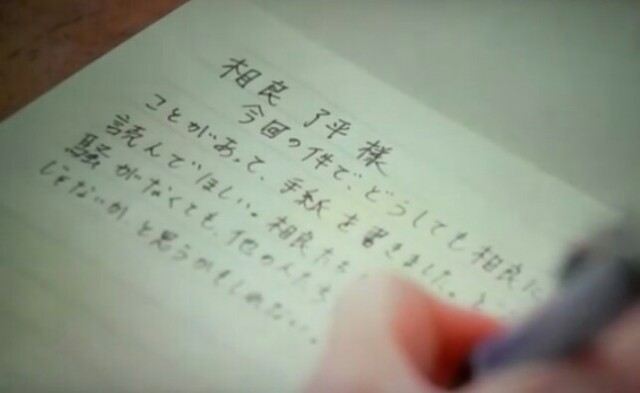 相良 了平 様
今回の件で、どうしても相良に
ことがあって、手紙を書きました。
読んでほしい。相良たち
騒がなくても、他の人たち
じゃないか、と思うかもしれない…。